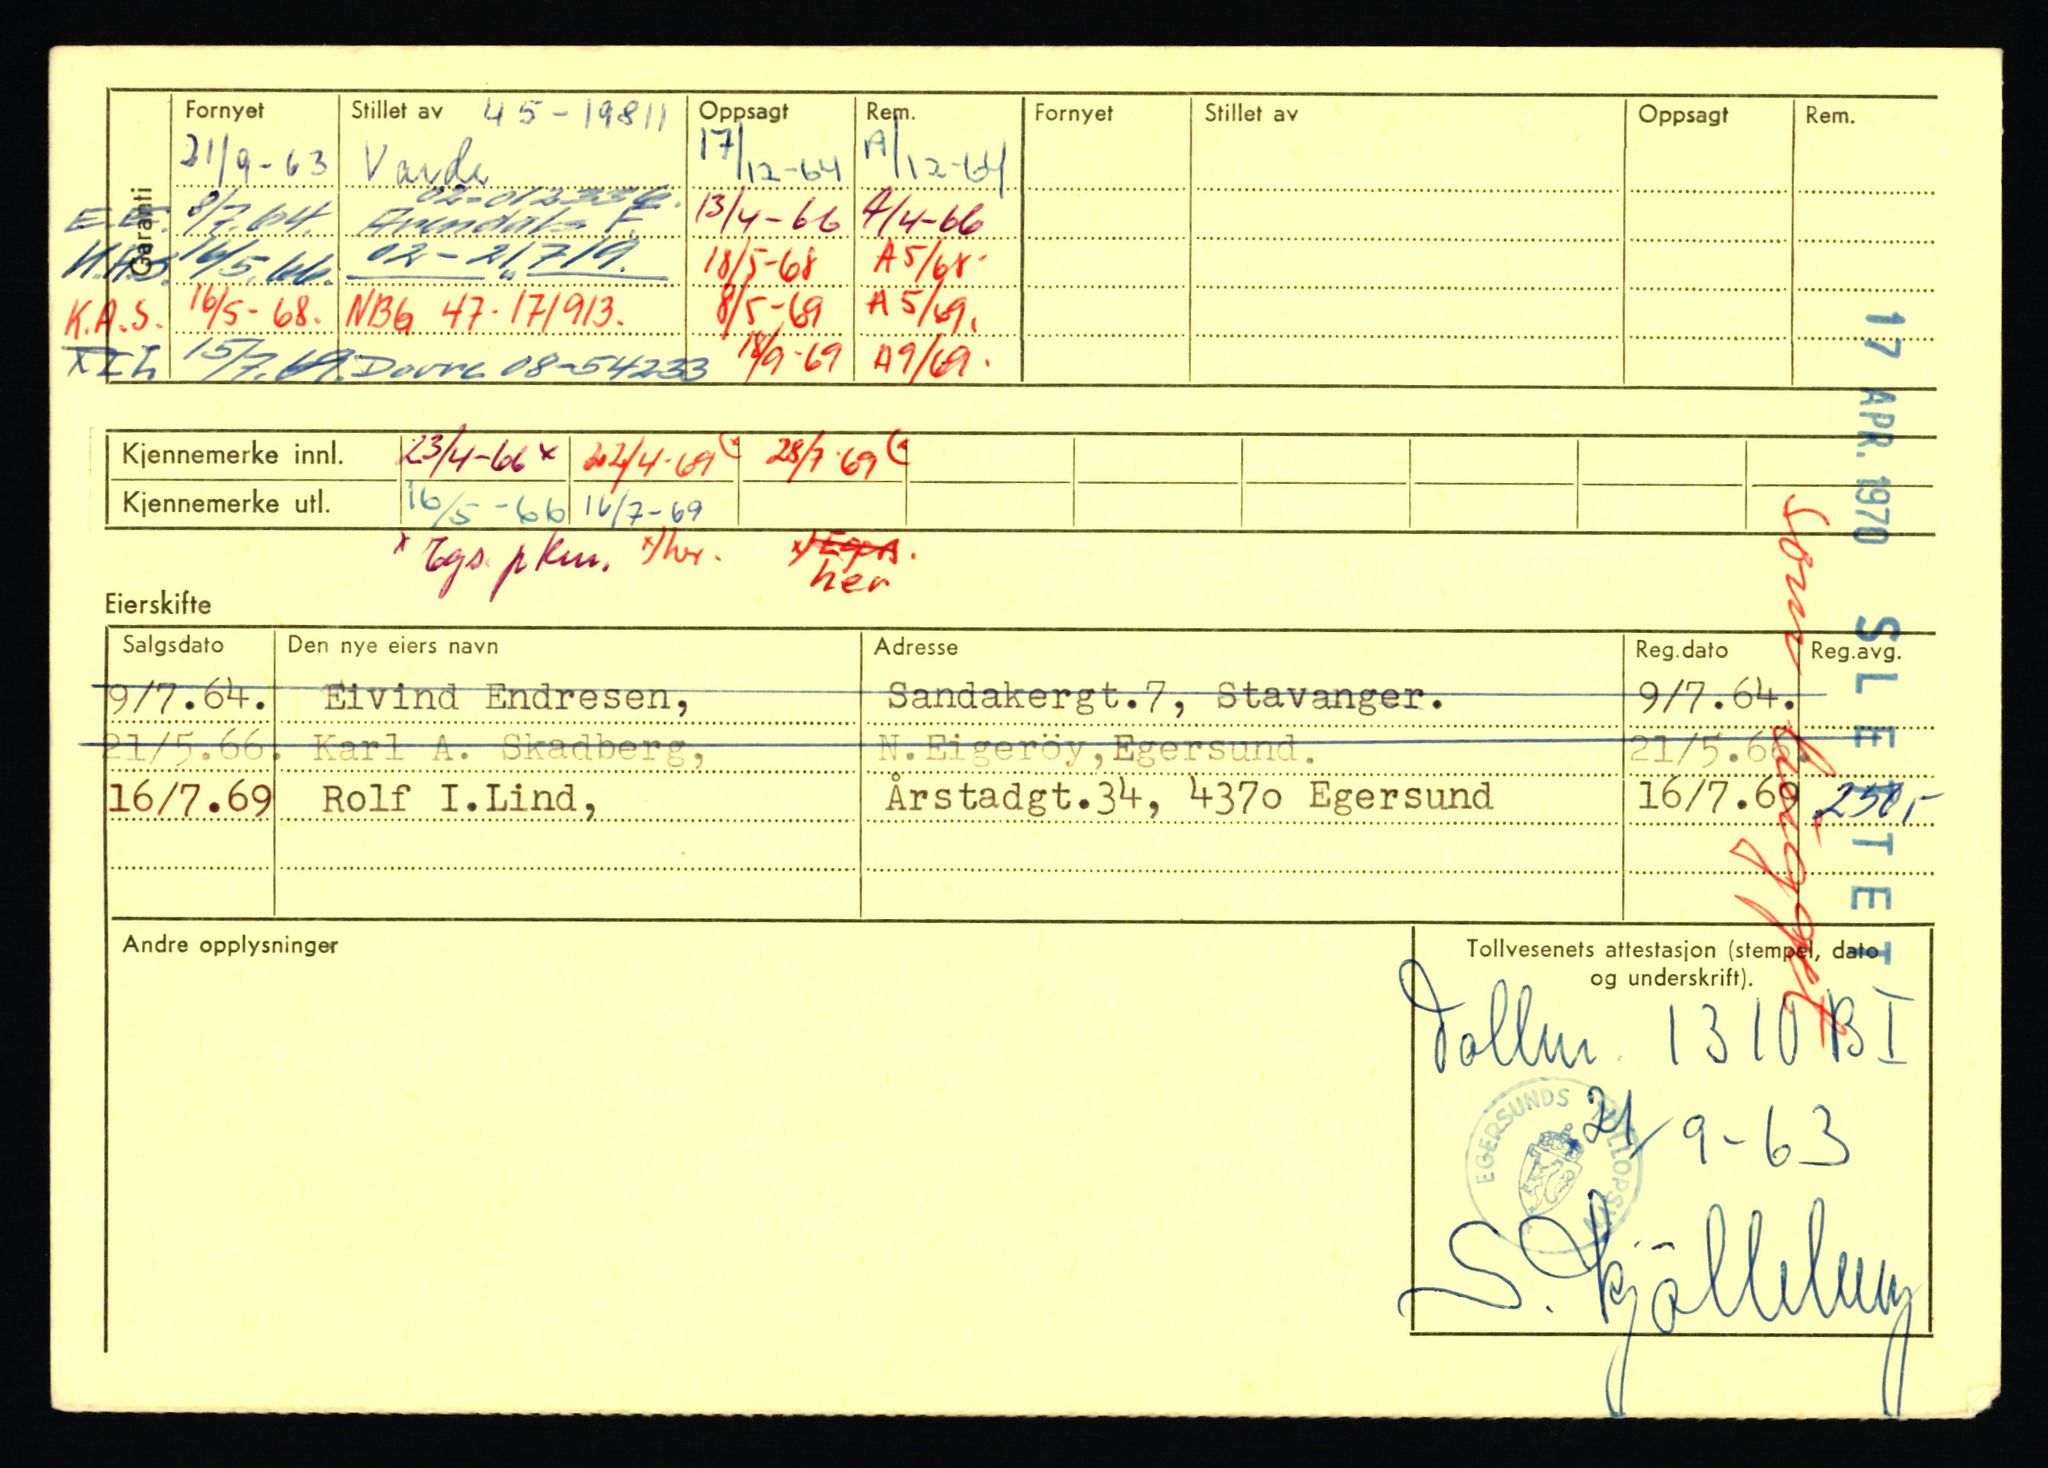 Garanti Fornyet Stillet av 45-19811 Oppsagt Rem. Fornyet Stillet av Oppsagt Rem.
21/9-63 Varde 17/12-64 A/12-64
E.E. 8/7.64. 02-012336. Arendals F. 13/4-66 A/4-66
K.A.S. 16/5.66. 02-21719. 18/5-68 A5/68.
K.A.S. 16/5-68. NBG 47-171913. 8/5-69 A5/69.
15/7.69. Dovre 08-54233 18/9-69 A9/69.
Kjennemerke innl. 23/4-66 x 22/4-69 28/7-69
Kjennemerke utl. 16/5-66 16/7-69
x Egs. p km. x) her. x) Egrs. her
Eierskifte
Salgsdato Den nye eiers navn Adresse Reg.dato Reg.avg.
9/7.64. Eivind Endresen, Sandakergt.7, Stavanger. 9/7.64.
21/5.66. Karl A. Skadberg, N.Eigeröy, Egersund. 21/5.66.
16/7.69 Rolf I.Lind, Årstadgt.34, 4370 Egersund 16/7.69 250,-
17 APR. 1970 SLETTET
som hugget
Andre opplysninger
Tollvesenets attestasjon (stempel, dato
og underskrift).
Tollnr. 1310 BI
21/9-63
EGERSUNDS TOLLOPSYN